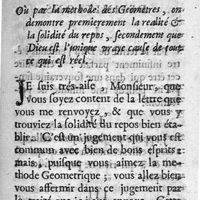 Où par la methode des Géomètres, on
demontre premierement la realité &
la solidité du repos, secondement que
Dieu est l'unique vraye cause de tout
ce qui est réel.
JE suis trés-aise, Monsieur, que
vous soyez content de la lettre que
vous me renvoyez, & que vous y
trouviez la solidité du repos bien éta-
blie. C'est un jugement qui vous est
commun avec bien de bons esprits:
mais, puisque vous aimez la me-
thode Geometrique; vous allez bien
vous affermir dans ce jugement par